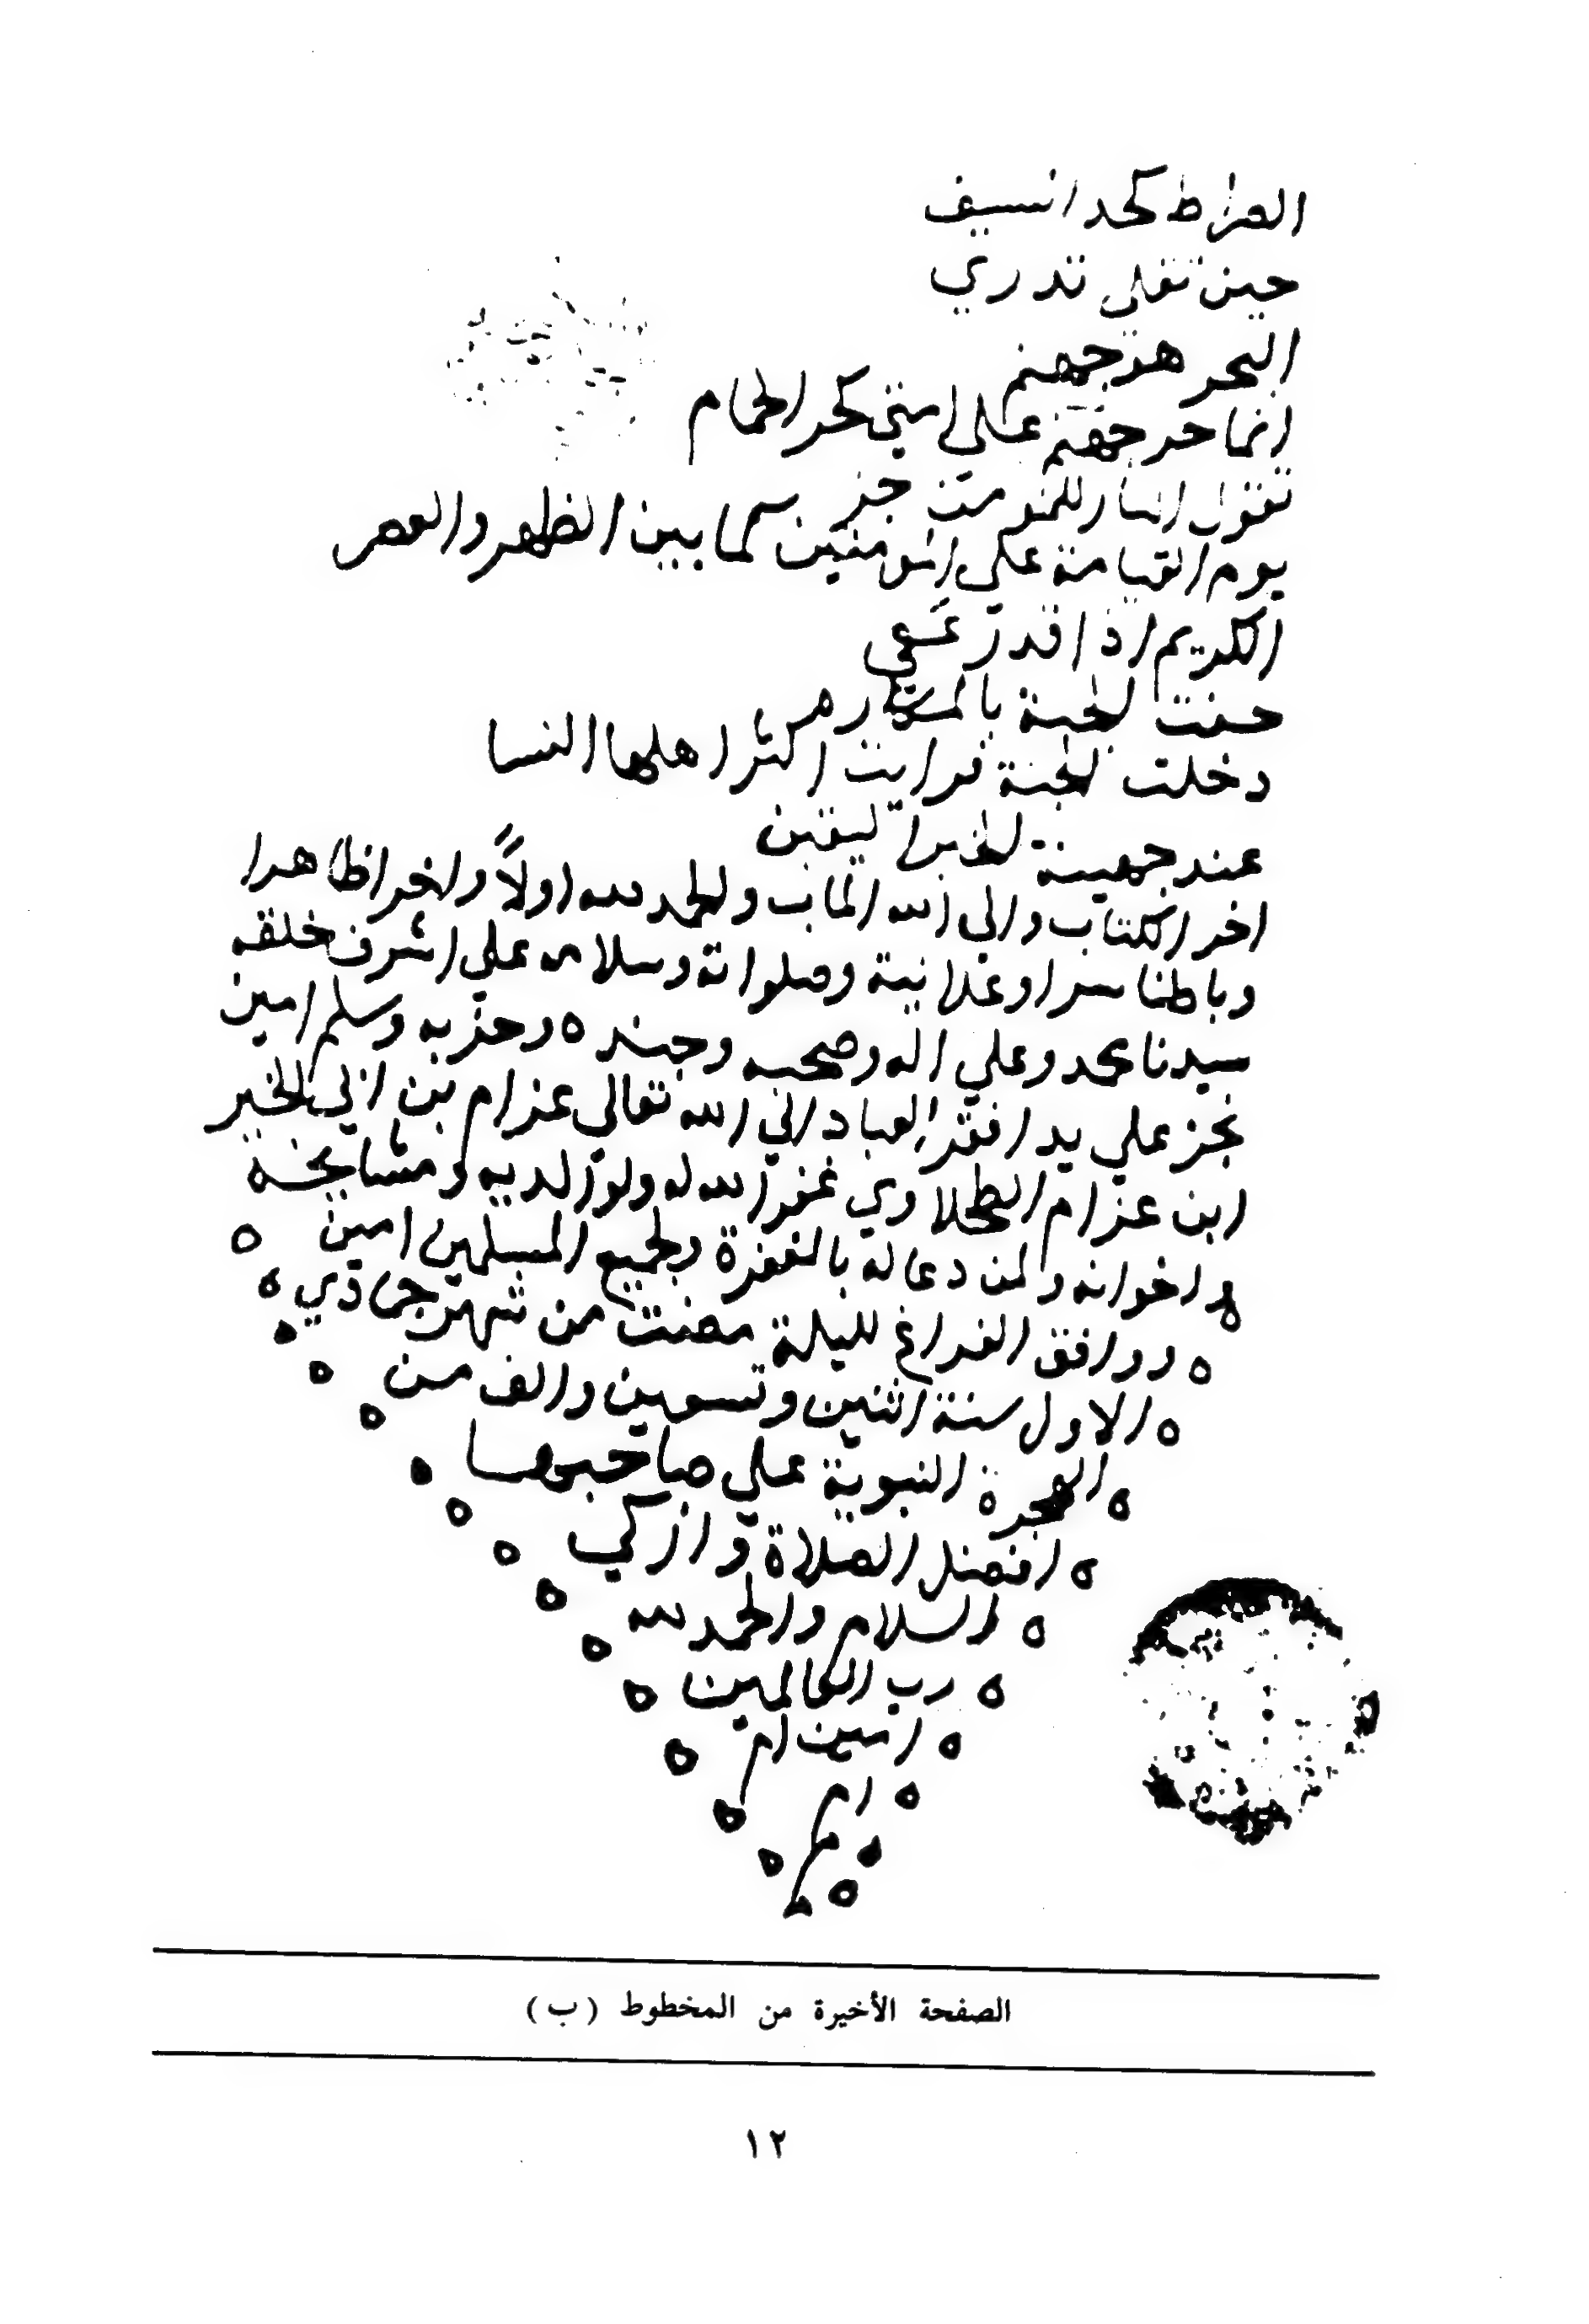 الصراط كحد السيف
حين تقلى تدري
البحر هو جهنم
انما حر جهنم على امتي كحر الحمام
تقول النار للمؤمن جز
يوم القيامة على المؤمنين كما بين الظهر والعصر
الكريم اذا قدر عفى
حفت الجنة بالمكاره
دخلت الجنة فرايت اكثر اهلها النسا
عند جهينة الخبر اليقين
اخر الكتاب والي الله الماب والحمد لله اولاً واخر اظاهرا
وباطنا سرا وعلانية وصلواته وسلامه علي اشرف خلقه
سيدنا محمد وعلي اله وصحبه وجنده وحزبه وسلم امين
نجز علي يد افقر العباد الي الله تعالي عزام بن ابي الخير
ابن عزام الطحلاوي غفر الله له ولوالديه ومشايخه
واخوانه ولمن دعا له بالمغفرة ولجميع المسلمين امين
ووافق الفراغ لليلة مضت من شهر جمادي
الاول سنة اثنين وتسعين والف من
الهجرة النبوية علي صاحبها
افضل الصلاة وازكي
السلام والحمد لله
رب العالمين
امين ام
ام
م
الصفحة الأخيرة من المخطوط (ب)
١٢